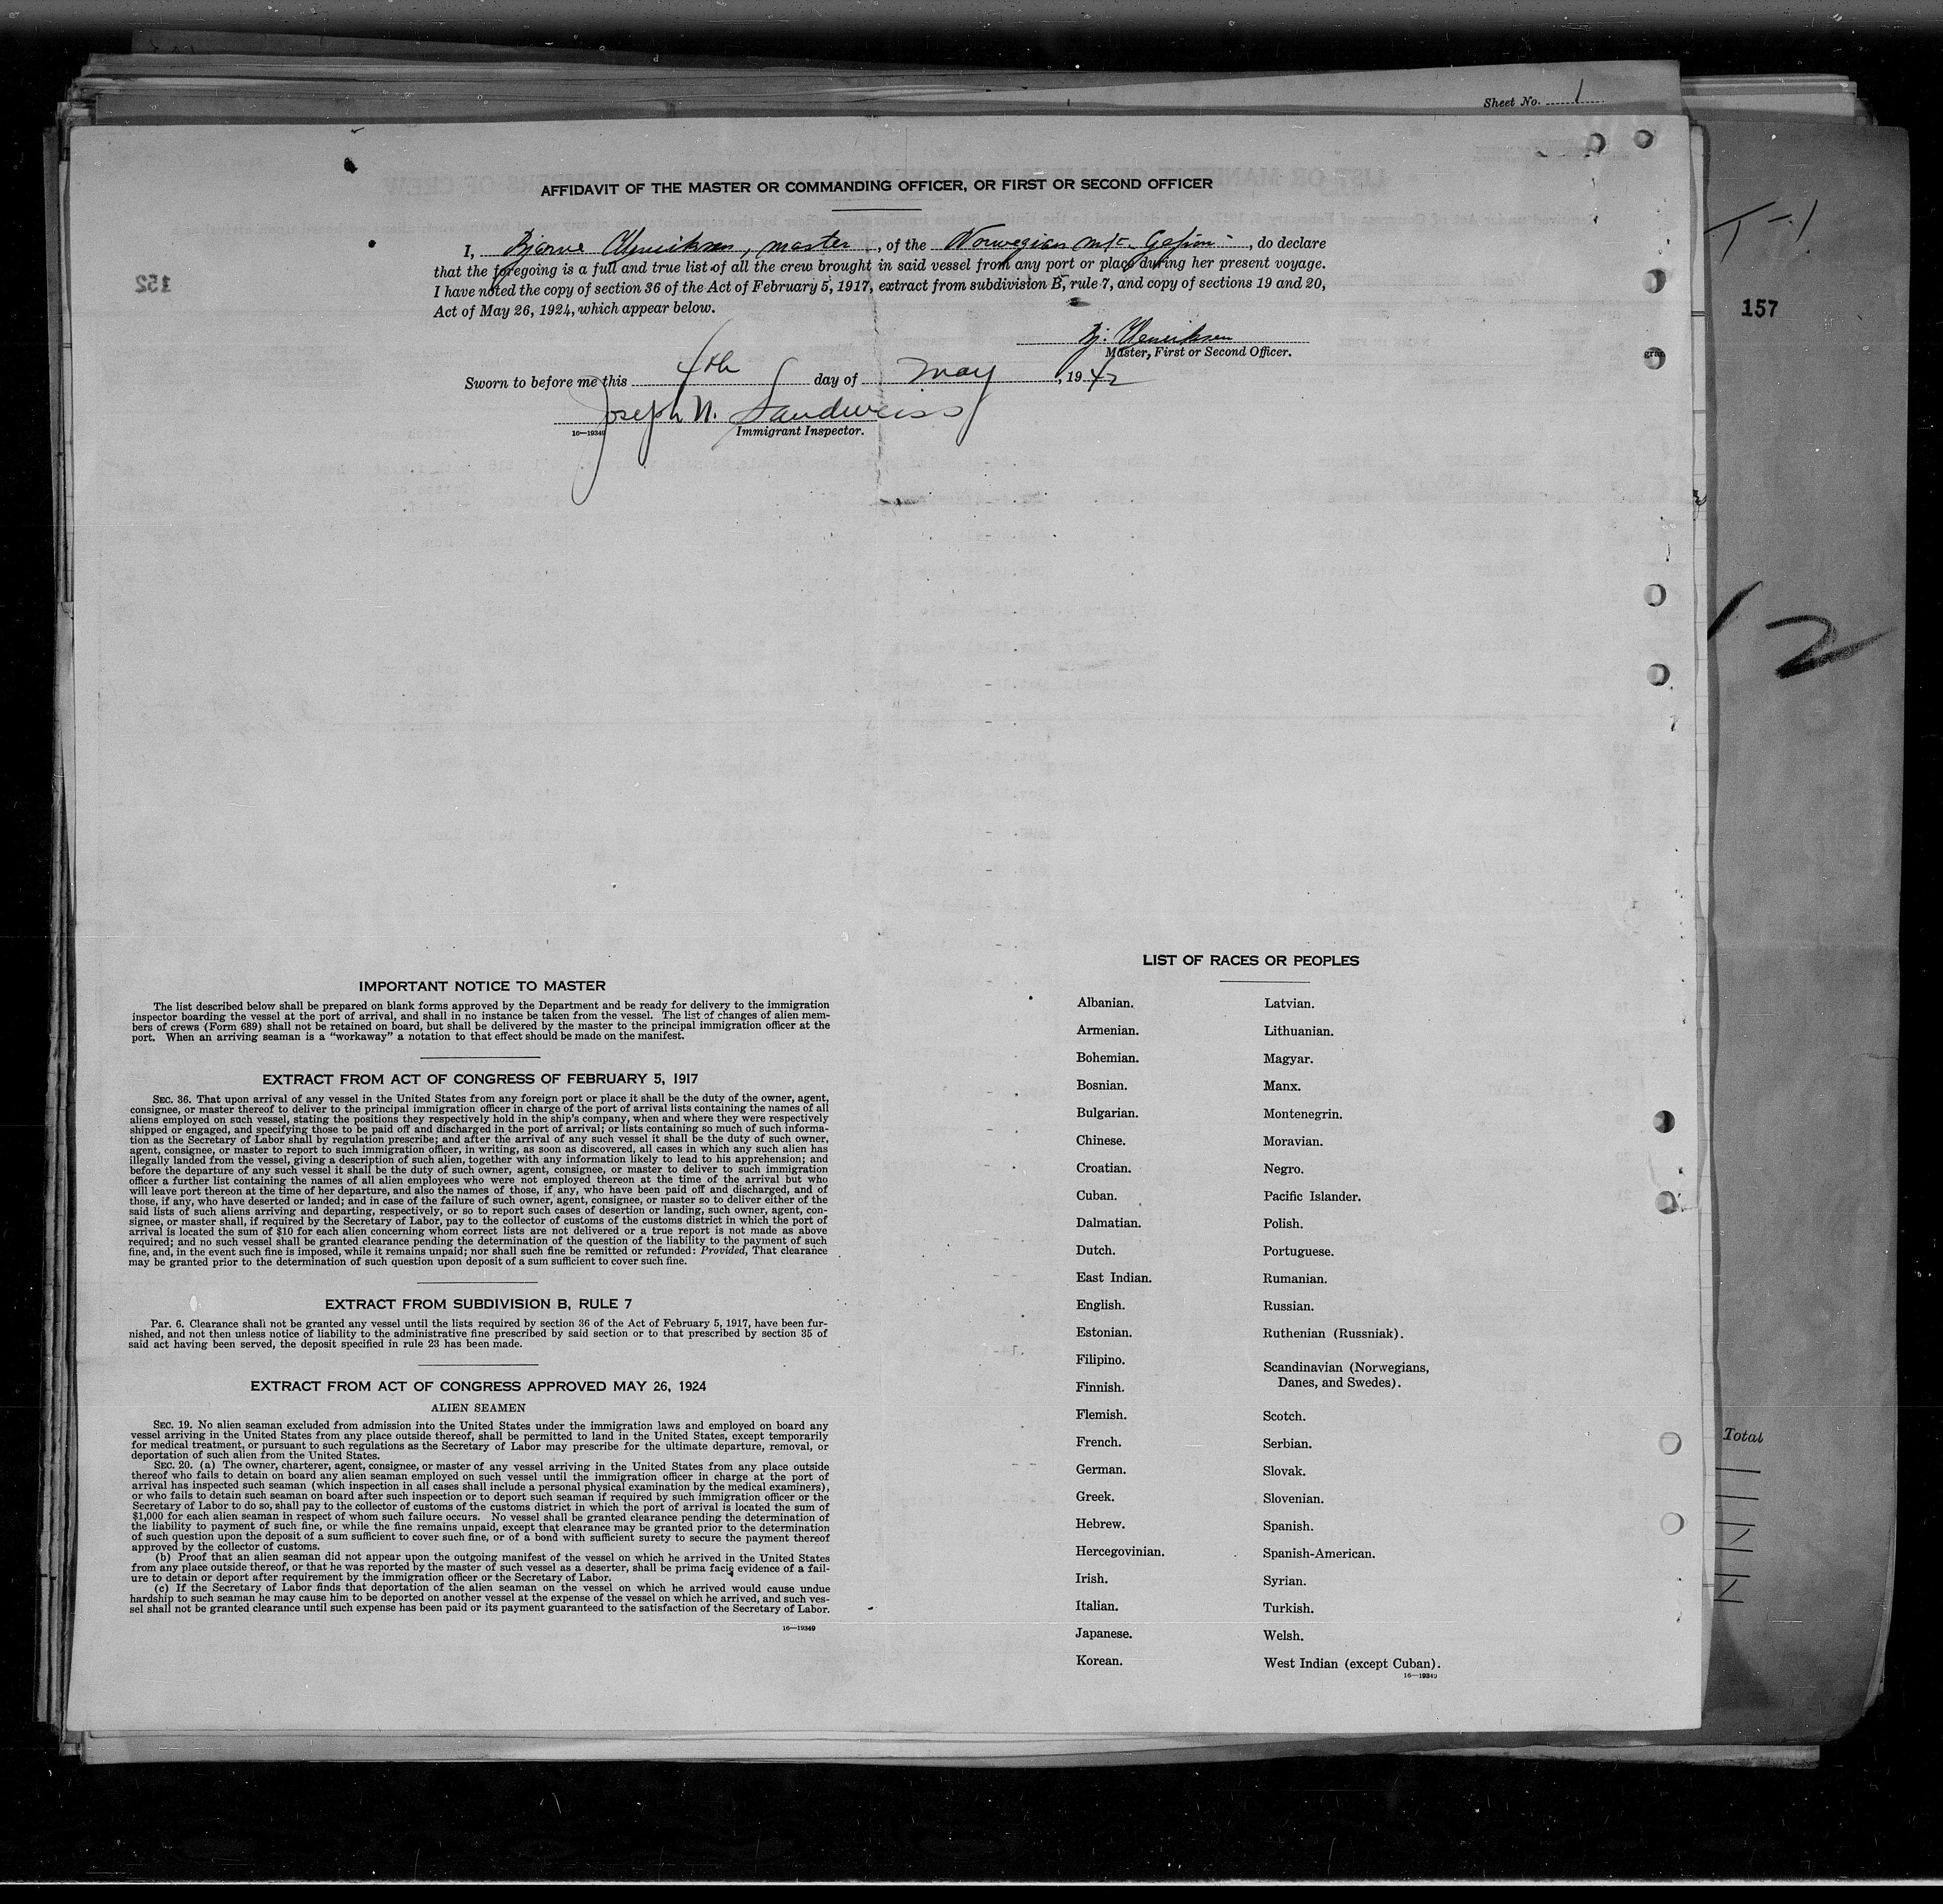 Sheet No. 1
AFFIDAVIT OF THE MASTER OR COMMANDING OFFICER, OR FIRST OR SECOND OFFICER
I, Bjarne Henriksen, master, of the Norwegian m/t. Gefion, do declare
that the foregoing is a full and true list of all the crew brought in said vessel from any port or place during her present voyage.
I have noted the copy of section 36 of the Act of February 5, 1917, extract from subdivision B, rule 7, and copy of sections 19 and 20,
Act of May 26, 1924, which appear below.
Bj. Henriksen
Master, First or Second Officer.
Sworn to before me this 4th day of May, 1942
Joseph N. Sandweiss
16—19349 Immigrant Inspector.
T-1
152
157
12
Total
IMPORTANT NOTICE TO MASTER
The list described below shall be prepared on blank forms approved by the Department and be ready for delivery to the immigration
inspector boarding the vessel at the port of arrival, and shall in no instance be taken from the vessel. The list of changes of alien mem-
bers of crews (Form 689) shall not be retained on board, but shall be delivered by the master to the principal immigration officer at the
port. When an arriving seaman is a "workaway" a notation to that effect should be made on the manifest.
EXTRACT FROM ACT OF CONGRESS OF FEBRUARY 5, 1917
SEC. 36. That upon arrival of any vessel in the United States from any foreign port or place it shall be the duty of the owner, agent,
consignee, or master thereof to deliver to the principal immigration officer in charge of the port of arrival lists containing the names of all
aliens employed on such vessel, stating the positions they respectively hold in the ship's company, when and where they were respectively
shipped or engaged, and specifying those to be paid off and discharged in the port of arrival; or lists containing so much of such informa-
tion as the Secretary of Labor shall by regulation prescribe; and after the arrival of any such vessel it shall be the duty of such owner,
agent, consignee, or master to report to such immigration officer, in writing, as soon as discovered, all cases in which any such alien has
illegally landed from the vessel, giving a description of such alien, together with any information likely to lead to his apprehension; and
before the departure of any such vessel it shall be the duty of such owner, agent, consignee, or master to deliver to such immigration
officer a further list containing the names of all alien employees who were not employed thereon at the time of the arrival but who
will leave port thereon at the time of her departure, and also the names of those, if any, who have been paid off and discharged, and of
those, if any, who have deserted or landed; and in case of the failure of such owner, agent, consignee, or master so to deliver either of the
said lists of such aliens arriving and departing, respectively, or so to report such cases of desertion or landing, such owner, agent, con-
signee, or master shall, if required by the Secretary of Labor, pay to the collector of customs of the customs district in which the port of
arrival is located the sum of $10 for each alien concerning whom correct lists are not delivered or a true report is not made as above
required; and no such vessel shall be granted clearance pending the determination of the question of the liability to the payment of such
fine, and, in the event such fine is imposed, while it remains unpaid; nor shall such fine be remitted or refunded: Provided, That clearance
may be granted prior to the determination of such question upon deposit of a sum sufficient to cover such fine.
EXTRACT FROM SUBDIVISION B, RULE 7
Par. 6. Clearance shall not be granted any vessel until the lists required by section 36 of the Act of February 5, 1917, have been fur-
nished, and not then unless notice of liability to the administrative fine prescribed by said section or to that prescribed by section 35 of
said act having been served, the deposit specified in rule 23 has been made.
EXTRACT FROM ACT OF CONGRESS APPROVED MAY 26, 1924
ALIEN SEAMEN
SEC. 19. No alien seaman excluded from admission into the United States under the immigration laws and employed on board any
vessel arriving in the United States from any place outside thereof, shall be permitted to land in the United States, except temporarily
for medical treatment, or pursuant to such regulations as the Secretary of Labor may prescribe for the ultimate departure, removal, or
deportation of such alien from the United States.
SEC. 20. (a) The owner, charterer, agent, consignee, or master of any vessel arriving in the United States from any place outside
thereof who fails to detain on board any alien seaman employed on such vessel until the immigration officer in charge at the port of
arrival has inspected such seaman (which inspection in all cases shall include a personal physical examination by the medical examiners),
or who fails to detain such seaman on board after such inspection or to deport such seaman if required by such immigration officer or the
Secretary of Labor to do so, shall pay to the collector of customs of the customs district in which the port of arrival is located the sum of
$1,000 for each alien seaman in respect of whom such failure occurs. No vessel shall be granted clearance pending the determination of
the liability to payment of such fine, or while the fine remains unpaid, except that clearance may be granted prior to the determination
of such question upon the deposit of a sum sufficient to cover such fine, or of a bond with sufficient surety to secure the payment thereof
approved by the collector of customs.
(b) Proof that an alien seaman did not appear upon the outgoing manifest of the vessel on which he arrived in the United States
from any place outside thereof, or that he was reported by the master of such vessel as a deserter, shall be prima facie evidence of a fail-
ure to detain or deport after requirement by the immigration officer or the Secretary of Labor.
(c) If the Secretary of Labor finds that deportation of the alien seaman on the vessel on which he arrived would cause undue
hardship to such seaman he may cause him to be deported on another vessel at the expense of the vessel on which he arrived, and such ves-
sel shall not be granted clearance until such expense has been paid or its payment guaranteed to the satisfaction of the Secretary of Labor.
16—19349
LIST OF RACES OR PEOPLES
Albanian.
Armenian.
Bohemian.
Bosnian.
Bulgarian.
Chinese.
Croatian.
Cuban.
Dalmatian.
Dutch.
East Indian.
English.
Estonian.
Filipino.
Finnish.
Flemish.
French.
German.
Greek.
Hebrew.
Hercegovinian.
Irish.
Italian.
Japanese.
Korean.
Latvian.
Lithuanian.
Magyar.
Manx.
Montenegrin.
Moravian.
Negro.
Pacific Islander.
Polish.
Portuguese.
Rumanian.
Russian.
Ruthenian (Russniak).
Scandinavian (Norwegians,
Danes, and Swedes).
Scotch.
Serbian.
Slovak.
Slovenian.
Spanish.
Spanish-American.
Syrian.
Turkish.
Welsh.
West Indian (except Cuban).
16—19349